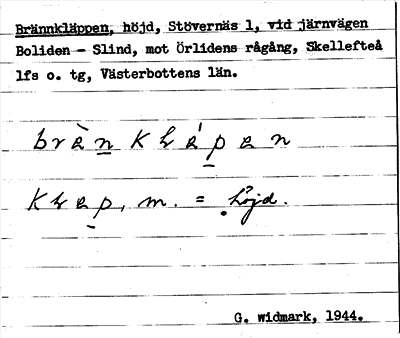 Brännkläppen, höjd, Stövernäs 1, vid järnvägen
Boliden - Slind, mot Örlidens rågång, Skellefteå
lfs o. tg, Västerbottens län.
bràn kláp a n
klap, m. = höjd.
G. Widmark, 1944.